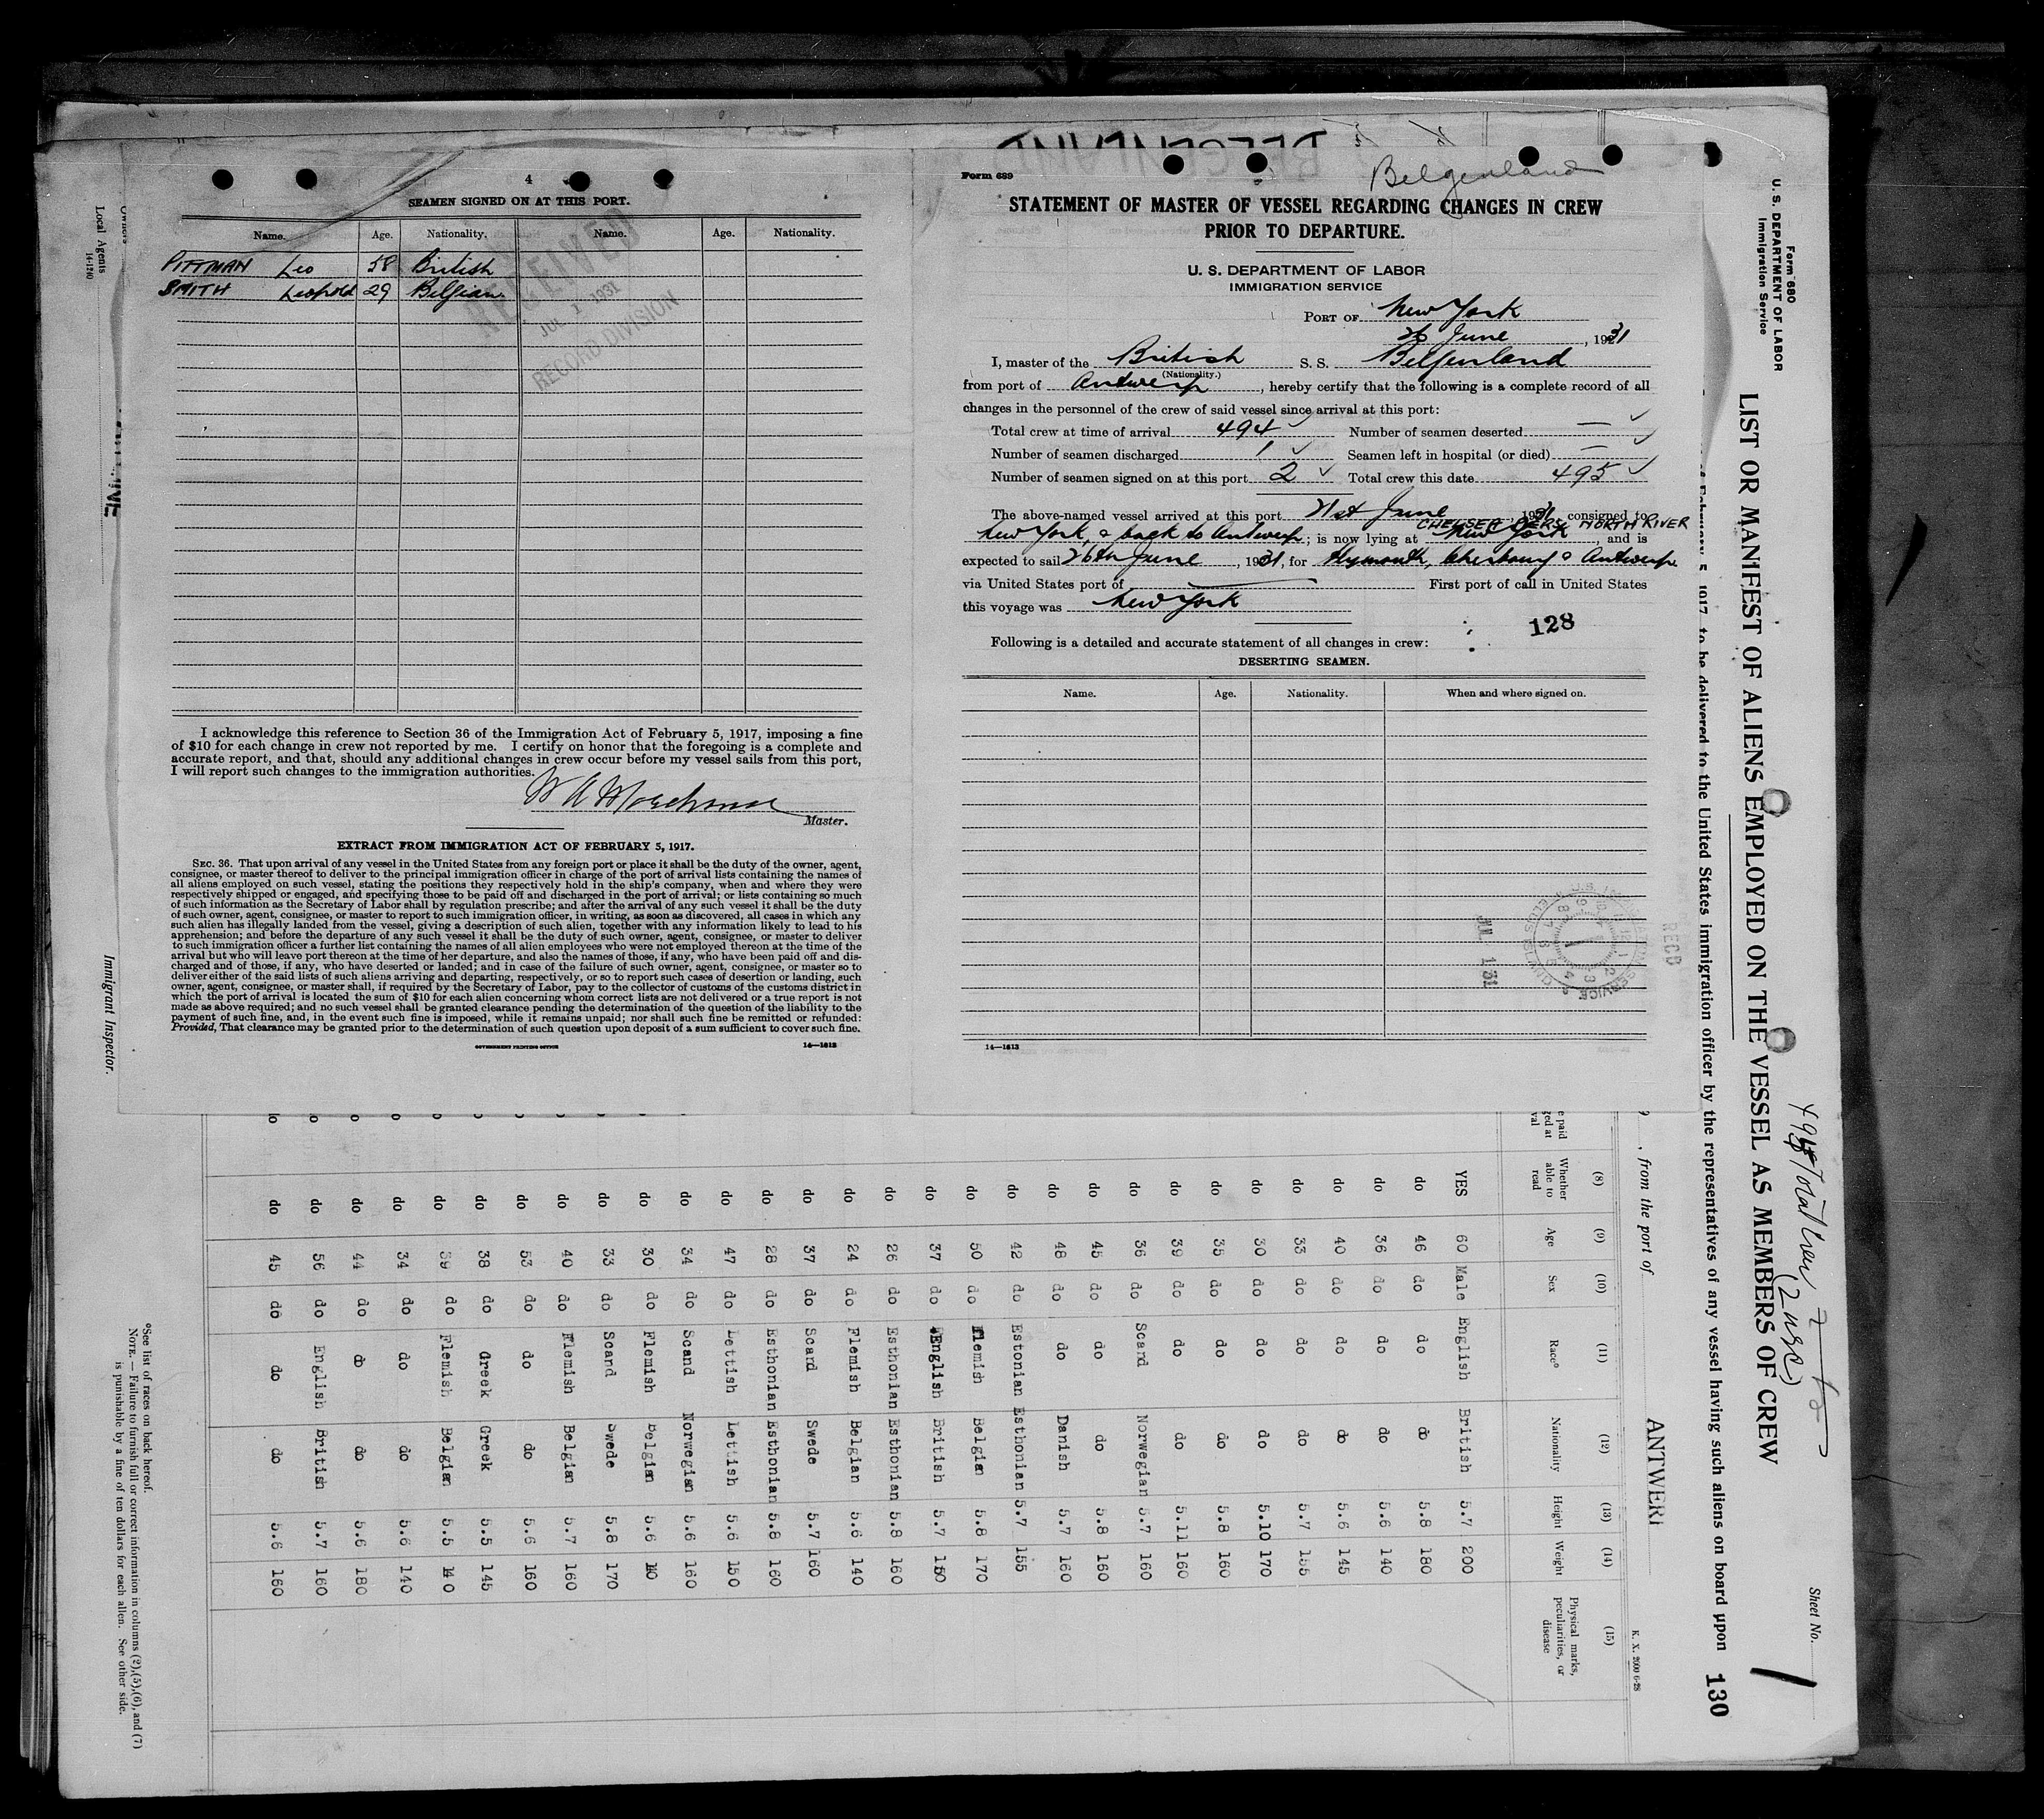 4
SEAMEN SIGNED ON AT THIS PORT.
Name. Age. Nationality. Name. Age. Nationality.
PITTMAN Leo 58 British
SMITH Leopold 29 Belgian
RECEIVED
JUL 1 1931
RECORD DIVISION
I acknowledge this reference to Section 36 of the Immigration Act of February 5, 1917, imposing a fine
of $10 for each change in crew not reported by me. I certify on honor that the foregoing is a complete and
accurate report, and that, should any additional changes in crew occur before my vessel sails from this port,
I will report such changes to the immigration authorities.
Master.
EXTRACT FROM IMMIGRATION ACT OF FEBRUARY 5, 1917.
SEC. 36. That upon arrival of any vessel in the United States from any foreign port or place it shall be the duty of the owner, agent,
consignee, or master thereof to deliver to the principal immigration officer in charge of the port of arrival lists containing the names of
all aliens employed on such vessel, stating the positions they respectively hold in the ship's company, when and where they were
respectively shipped or engaged, and specifying those to be paid off and discharged in the port of arrival; or lists containing so much
of such information as the Secretary of Labor shall by regulation prescribe; and after the arrival of any such vessel it shall be the duty
of such owner, agent, consignee, or master to report to such immigration officer, in writing, as soon as discovered, all cases in which any
such alien has illegally landed from the vessel, giving a description of such alien, together with any information likely to lead to his
apprehension; and before the departure of any such vessel it shall be the duty of such owner, agent, consignee, or master to deliver
to such immigration officer a further list containing the names of all alien employees who were not employed thereon at the time of the
arrival but who will leave port thereon at the time of her departure, and also the names of those, if any, who have been paid off and dis-
charged and of those, if any, who have deserted or landed; and in case of the failure of such owner, agent, consignee, or master so to
deliver either of the said lists of such aliens arriving and departing, respectively, or so to report such cases of desertion or landing, such
owner, agent, consignee, or master shall, if required by the Secretary of Labor, pay to the collector of customs of the customs district in
which the port of arrival is located the sum of $10 for each alien concerning whom correct lists are not delivered or a true report is not
made as above required; and no such vessel shall be granted clearance pending the determination of the question of the liability to the
payment of such fine, and, in the event such fine is imposed, while it remains unpaid; nor shall such fine be remitted or refunded:
Provided, That clearance may be granted prior to the determination of such question upon deposit of a sum sufficient to cover such fine.
GOVERNMENT PRINTING OFFICE 14—1613
Form 689
Belgenland
STATEMENT OF MASTER OF VESSEL REGARDING CHANGES IN CREW
PRIOR TO DEPARTURE.
U. S. DEPARTMENT OF LABOR
IMMIGRATION SERVICE
PORT OF New York
26 June, 1931
I, master of the British S. S. Belgenland
(Nationality.)
from port of Antwerp, hereby certify that the following is a complete record of all
changes in the personnel of the crew of said vessel since arrival at this port:
Total crew at time of arrival 494 Number of seamen deserted —
Number of seamen discharged 1 Seamen left in hospital (or died) —
Number of seamen signed on at this port 2 Total crew this date 495
The above-named vessel arrived at this port 21st June, 1931, consigned to
CHELSEA PIERS NORTH RIVER
New York, & back to Antwerp; is now lying at New York, and is
expected to sail 26th June, 1931, for Plymouth, Cherbourg & Antwerp
via United States port of — First port of call in United States
this voyage was New York
128
Following is a detailed and accurate statement of all changes in crew:
DESERTING SEAMEN.
Name. Age. Nationality. When and where signed on.
JUL 1 31
RECD
14—1613
Form 680
U. S. DEPARTMENT OF LABOR
Immigration Service
LIST OR MANIFEST OF ALIENS EMPLOYED ON THE VESSEL AS MEMBERS OF CREW
Sheet No. 1
1917, to be delivered to the United States immigration officer by the representatives of any vessel having such aliens on board upon
130
, from the port of ANTWERP
K. X. 2000 6-28
(8) (9) (10) (11) (12) (13) (14) (15)
Whether able to read Age Sex Race* Nationality Height Weight Physical marks, peculiarities, or disease
YES 60 Male English British 5.7 200
do 46 do do do 5.8 180
do 36 do do do 5.6 140
do 40 do do do 5.6 145
do 33 do do do 5.7 155
do 30 do do do 5.10 170
do 35 do do do 5.8 160
do 39 do do do 5.11 160
do 36 do Scand Norwegian 5.7 160
do 45 do do do 5.8 160
do 48 do do Danish 5.7 160
do 42 do Estonian Esthonian 5.7 155
do 50 do Flemish Belgian 5.8 170
do 37 do English British 5.7 150
do 26 do Esthonian Esthonian 5.8 160
do 24 do Flemish Belgian 5.6 140
do 37 do Scand Swede 5.7 160
do 28 do Esthonian Esthonian 5.8 160
do 47 do Lettish Lettish 5.6 150
do 34 do Scand Norwegian 5.6 160
do 30 do Flemish Belgian 5.6
do 33 do Scand Swede 5.8 170
do 40 do Flemish Belgian 5.7 160
do 53 do do do 5.6 160
do 38 do Greek Greek 5.5 145
do 39 do Flemish Belgian 5.5 140
do 34 do do do 5.6 140
do 44 do do do 5.6 180
do 56 do English British 5.7 160
do 45 do do do 5.6 160
*See list of races on back hereof.
NOTE. — Failure to furnish full or correct information in columns (2),(5),(6), and (7)
is punishable by a fine of ten dollars for each alien. See other side.
Owners
Local Agents
14-1240
Immigrant Inspector.